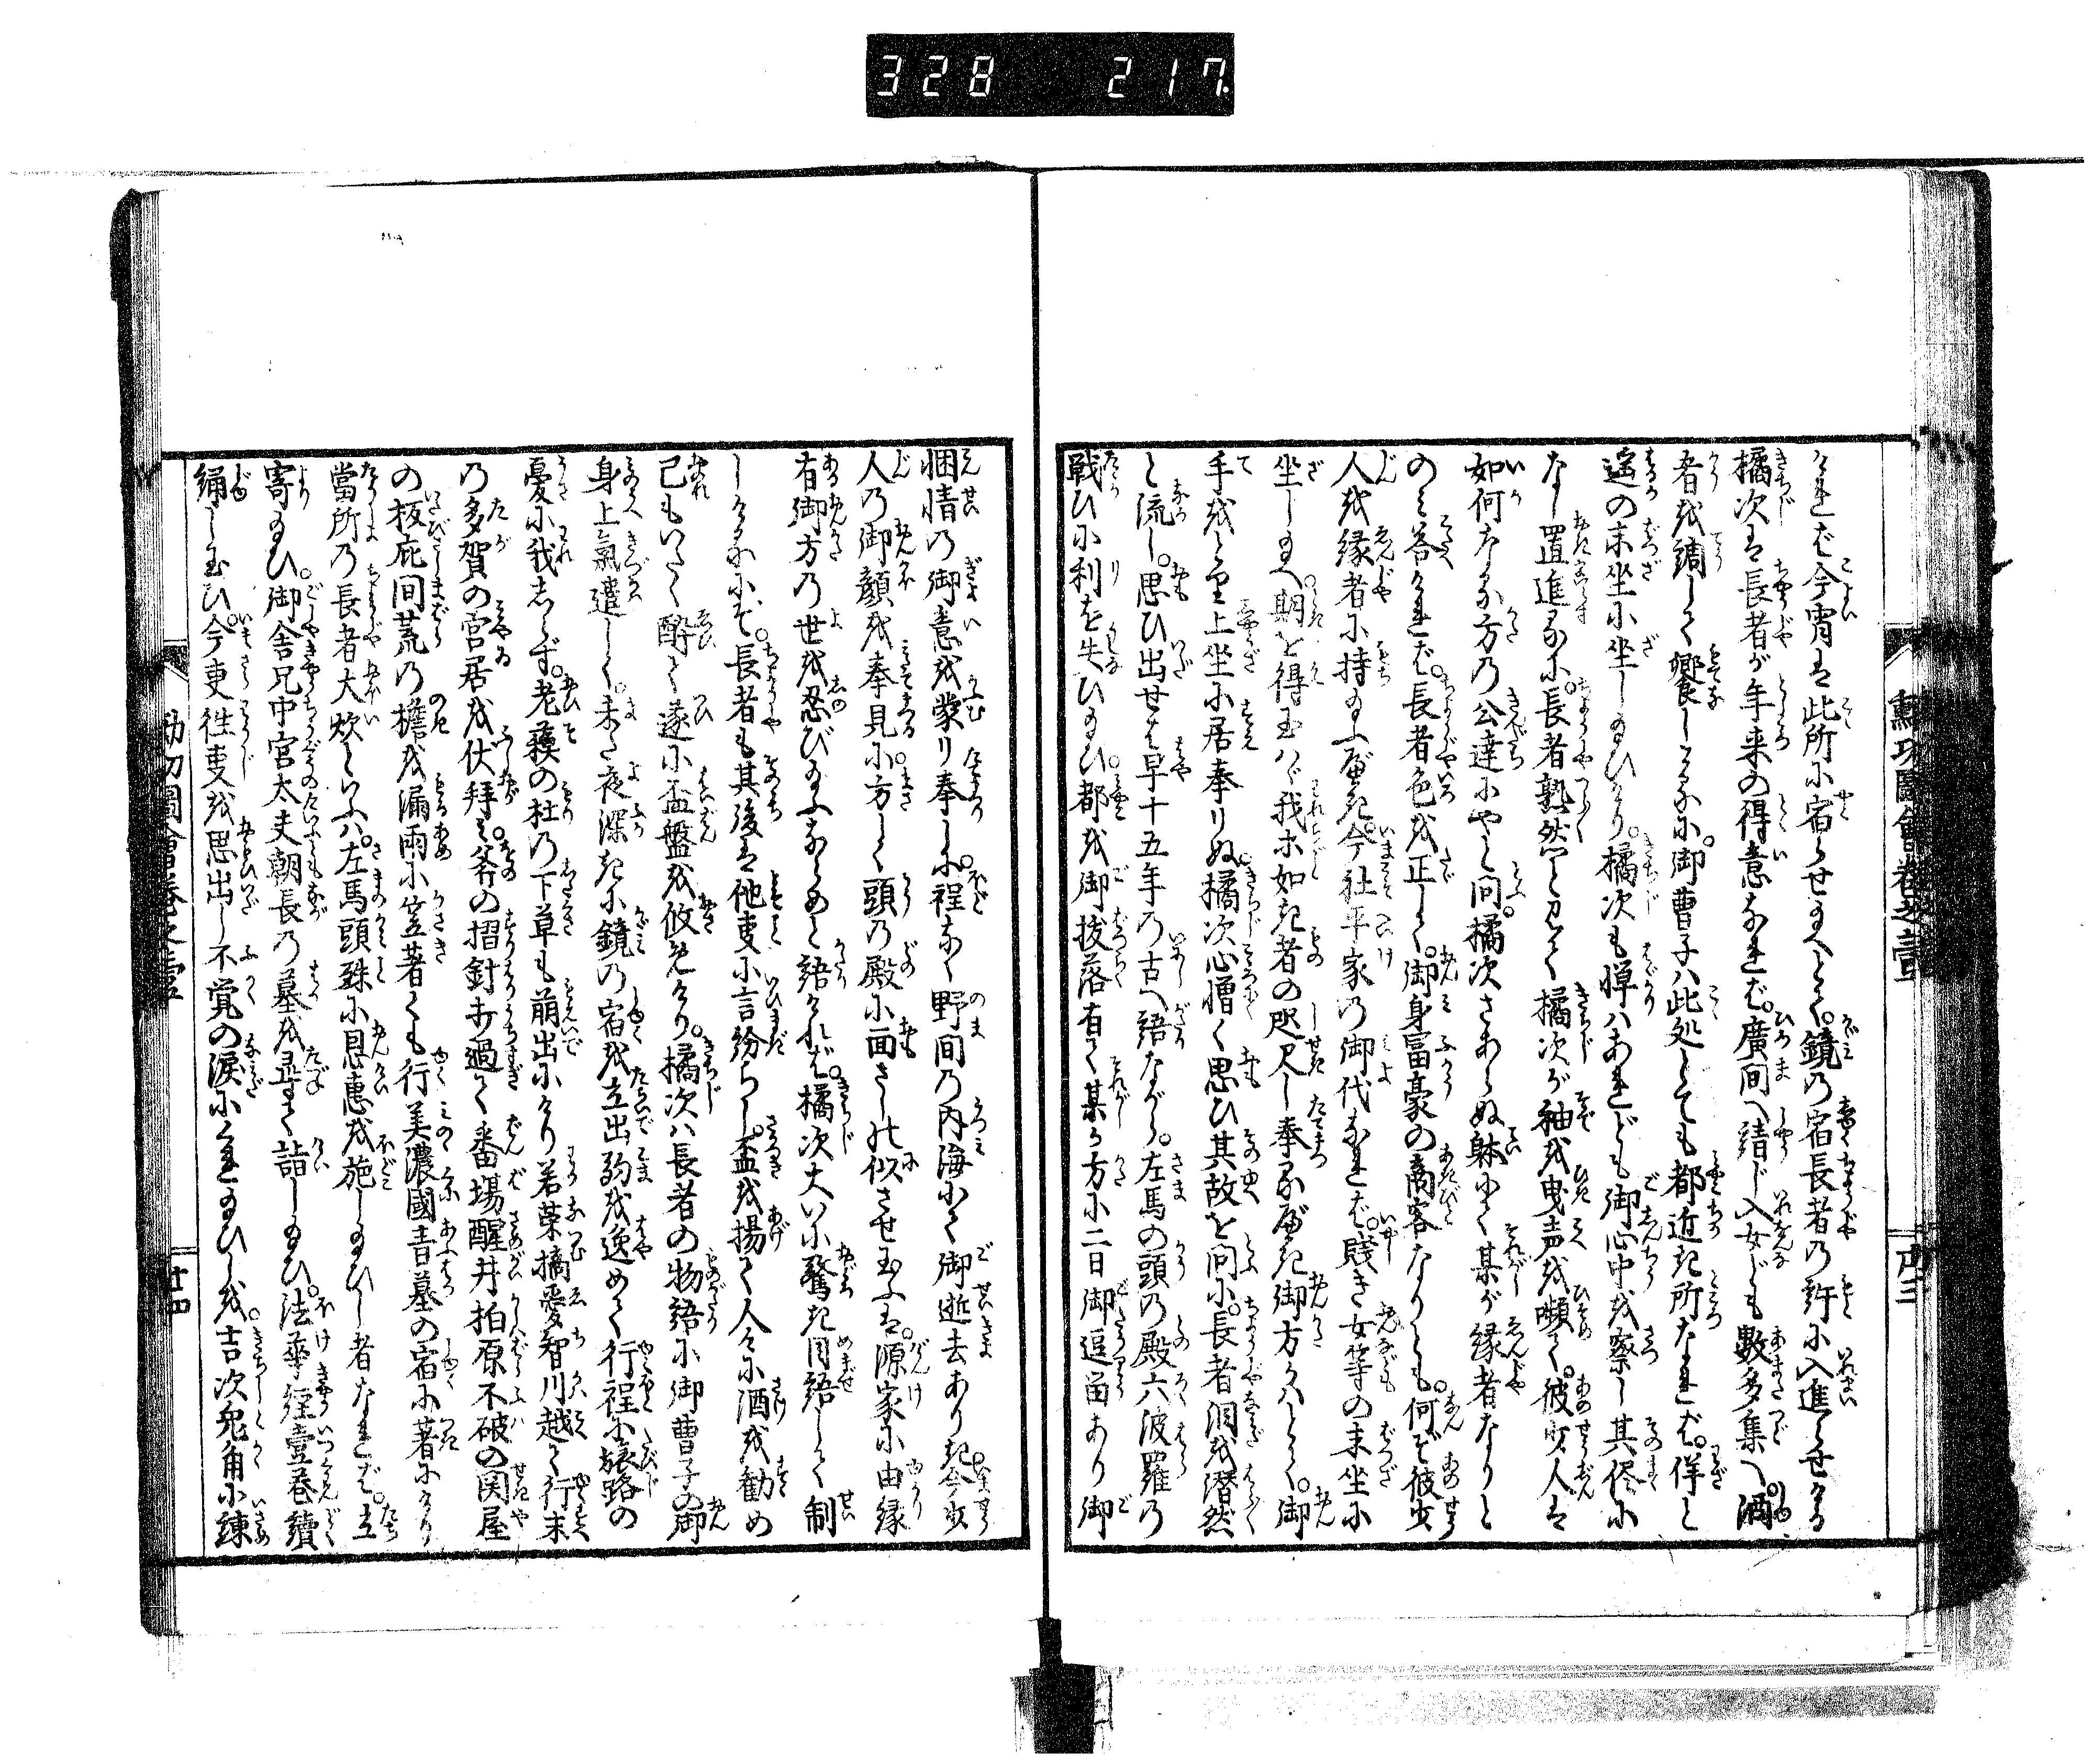 328 217
勲功圖會巻之壹
けれど今宵は此所に宿らせ給へとて。鏡の宿長者の許に入進らせける
橘次は長者が年来の得意なれば。廣間へ請じ入女ども數多集へ。酒
者を調して饗しけるに。御曹子ハ此処とても都近き所なれば。佯と
遙の末坐に坐し給ひけり。橘次も憚ハあれども御心中を察し其侭に
なし置進るに。長者熟然と見て橘次が袖を曳声を嚬て。彼少人は
如何なる方の公達にやと問。橘次さあらぬ躰にて某が縁者なりと
のミ答けれど。長者色を正して。御身富豪の商客なりとも。何ぞ彼少
人を縁者に持給ふべき。今社平家の御代なれど。賤き女等の末坐に
坐し給へ期を得玉ハヾ我ホ如き者の咫尺し奉るべき御方かハとて。御
手をとり上坐に居奉りぬ橘次心憎く思ひ其故を問に。長者泪を潜然
と流し。思ひ出せば早十五年の古へ語ながら。左馬の頭の殿六波羅の
戦ひに利を失ひ給ひ。都を御拔落有て某が方に二日御逗留あり御
悃情の御意を蒙り奉しに。程なく野間の内海にて御逝去ありき。今少
人の御顔を奉見に。方しく頭の殿に面ざし能似させ玉ふは。源家に由縁
有御方の世を忍び給ふならめと語けれど。橘次大いに驚き目語して制
しけるにぞ。長者も其後は他事に言紛らし。盃を揚て人々に酒を勧め
己もいたく酔て遂に盃盤を收めけり。橘次ハ長者の物語に御曹子の御
身上氣遣しく。未だ夜深きに鏡の宿を立出駒を逸めて行程に旅路の
憂に我しらず。老蘓の杜の下草も萌出にけり若菜摘愛智川越て行末
の多賀の宮居を伏拜ミ。斧の摺針打過て番場醒井柏原不破の関屋
の板庇間荒の檐を漏雨に笠著ても行美濃國青墓の宿に著にけり
當所の長者大炊といふハ。左馬頭殊に恩惠を施し給ひし者なれど。立
寄給ひ。御舎兄中宮太夫朝長の墓を尋て詣し給ひ。法華經壹巻續
絹し玉ひ。今更徃事を思出し不覚の涙にくれ給ひしを。吉次兎角に諫